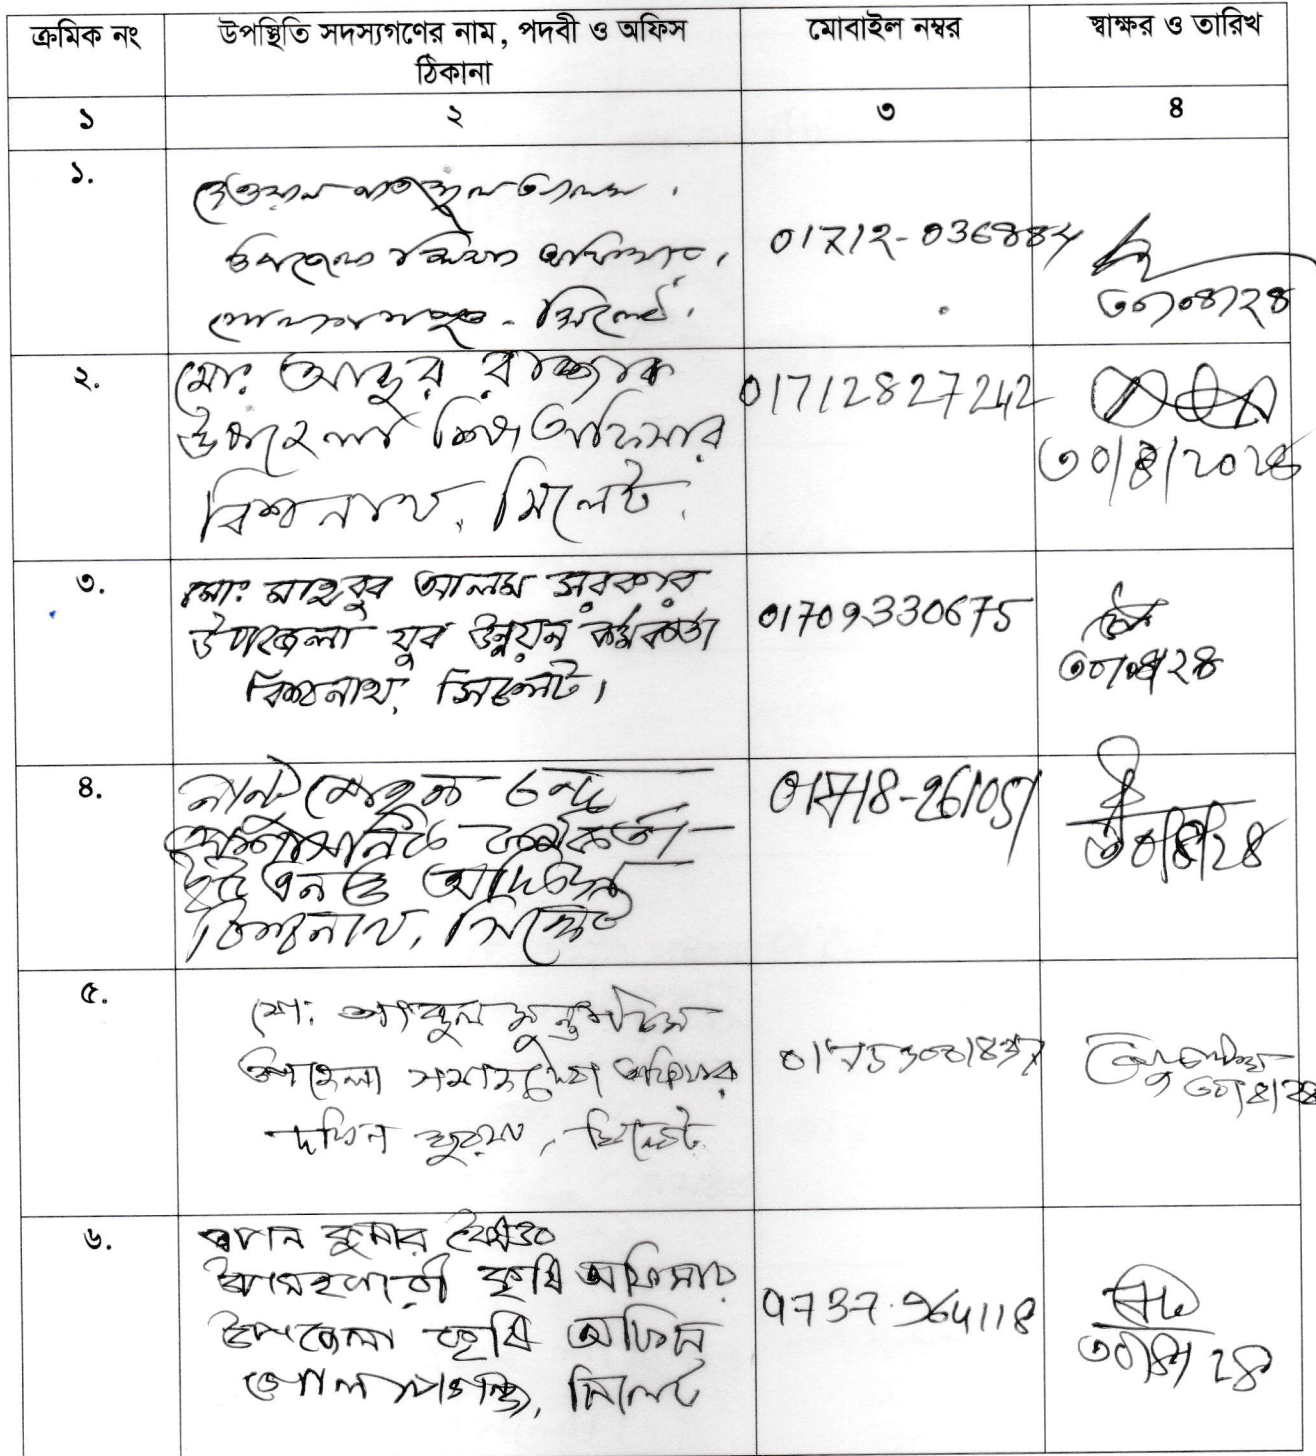 ক্রমিক নং উপস্থিতি সদস্যগণের নাম, পদবী ও অফিস ঠিকানা মোবাইল নম্বর স্বাক্ষর ও তারিখ
১ ২ ৩ ৪
১.
উপজেলা শিক্ষা অফিসার,
সিলেট।
01712-036884
৩০/০৪/২৪
২.
মোঃ আব্দুর রাজ্জাক
উপজেলা শিক্ষা অফিসার
বিশ্বনাথ, সিলেট।
01712827242
৩০/৪/২০২৪
৩.
মোঃ মাহবুব আলম সরকার
উপজেলা যুব উন্নয়ন কর্মকর্তা
বিশ্বনাথ, সিলেট।
01709330675
৩০/০৪/২৪
৪.
চন্দ
প্রশাসনিক কর্মকর্তা
ইউএনও অফিস
বিশ্বনাথ, সিলেট
01718-261051
৩০/৪/২৪
৫.
মো:
উপজেলা সমাজসেবা অফিসার
দক্ষিন সুরমা, সিলেট
01753001837
৩০/৪/২৪
৬.
কুমার
কৃষি অফিসার
উপজেলা কৃষি অফিস
গোলাপগঞ্জ, সিলেট
964118
৩০/৪/২৪